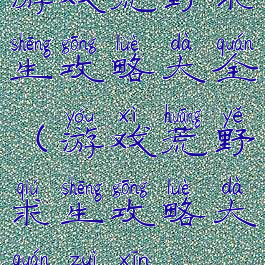 游戏荒野求
shēng gōng luè dà quán
生攻略大全
yóu xì huāng yě
（游戏荒野
qiú shēng gōng luè dà
求生攻略大
quán zuì xīn